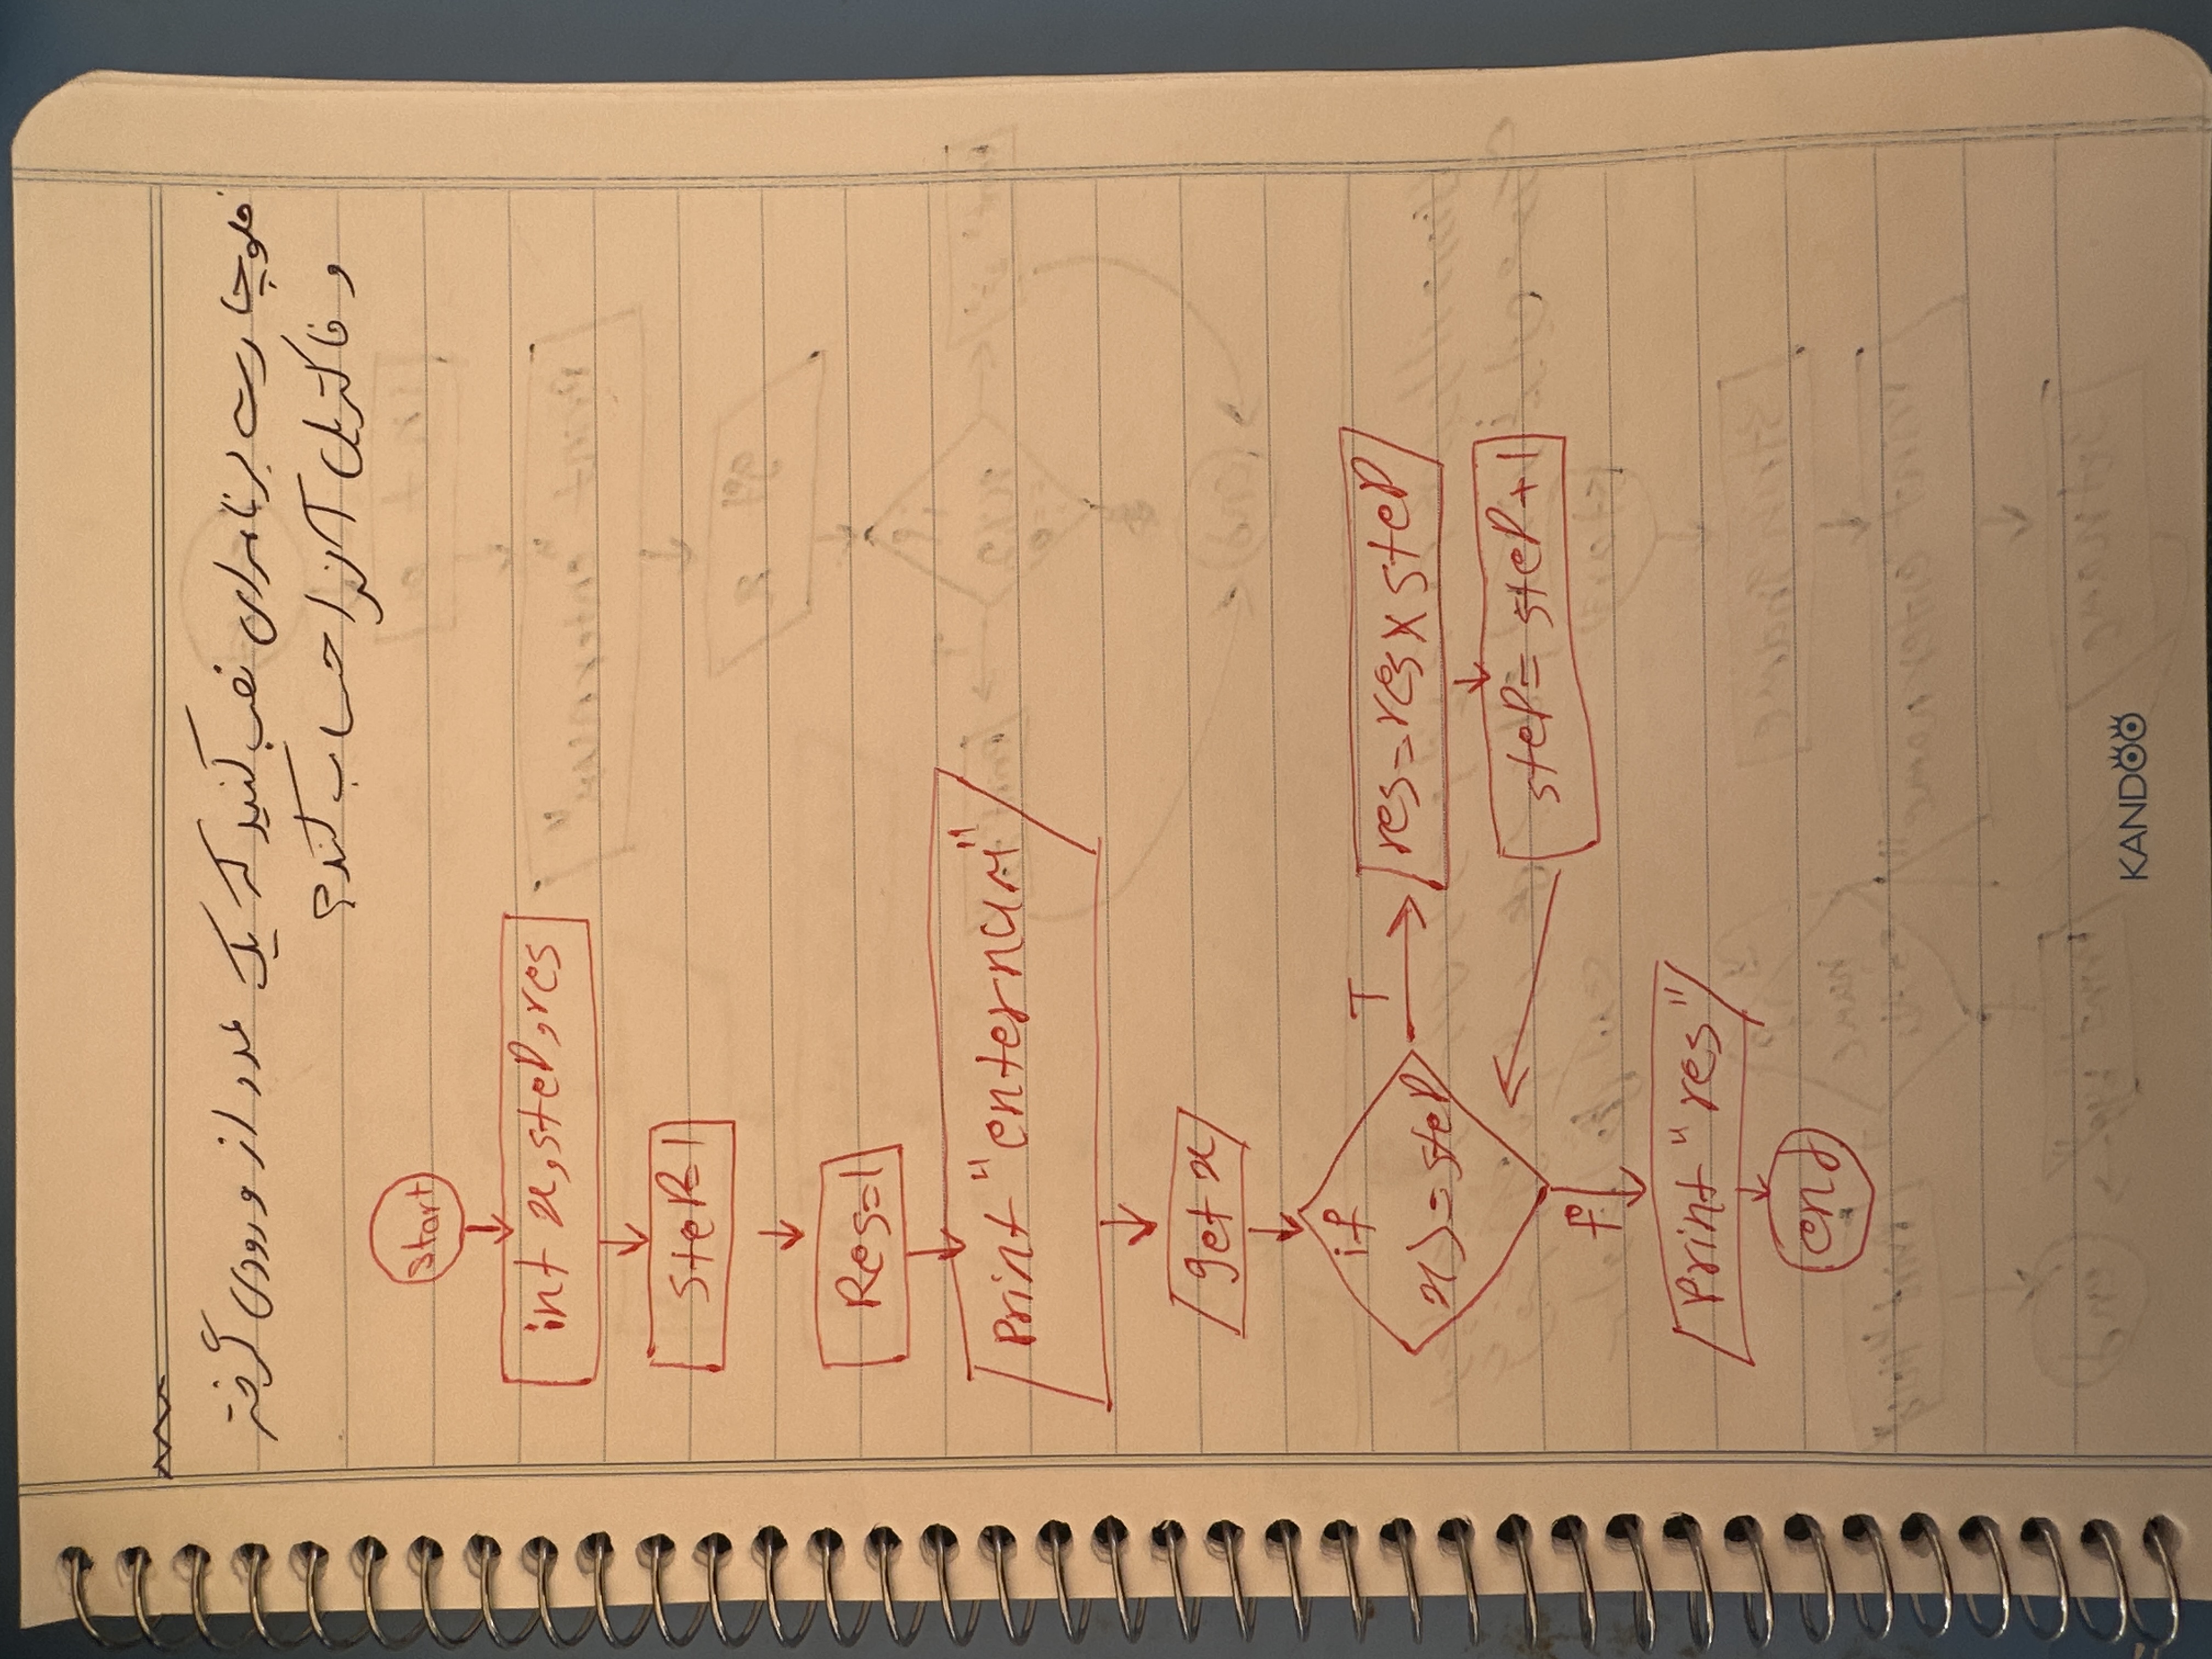 فلوچارت برنامه‌ای نصب کنید که یک عدد از ورودی گرفته
و فاکتریل آنرا حساب کند؟
start
int x, step, res
step=1
Res=1
print "enternum"
get x
if
x>=step
T
res=res×step
step=step+1
f
print "res"
end
KANDOO